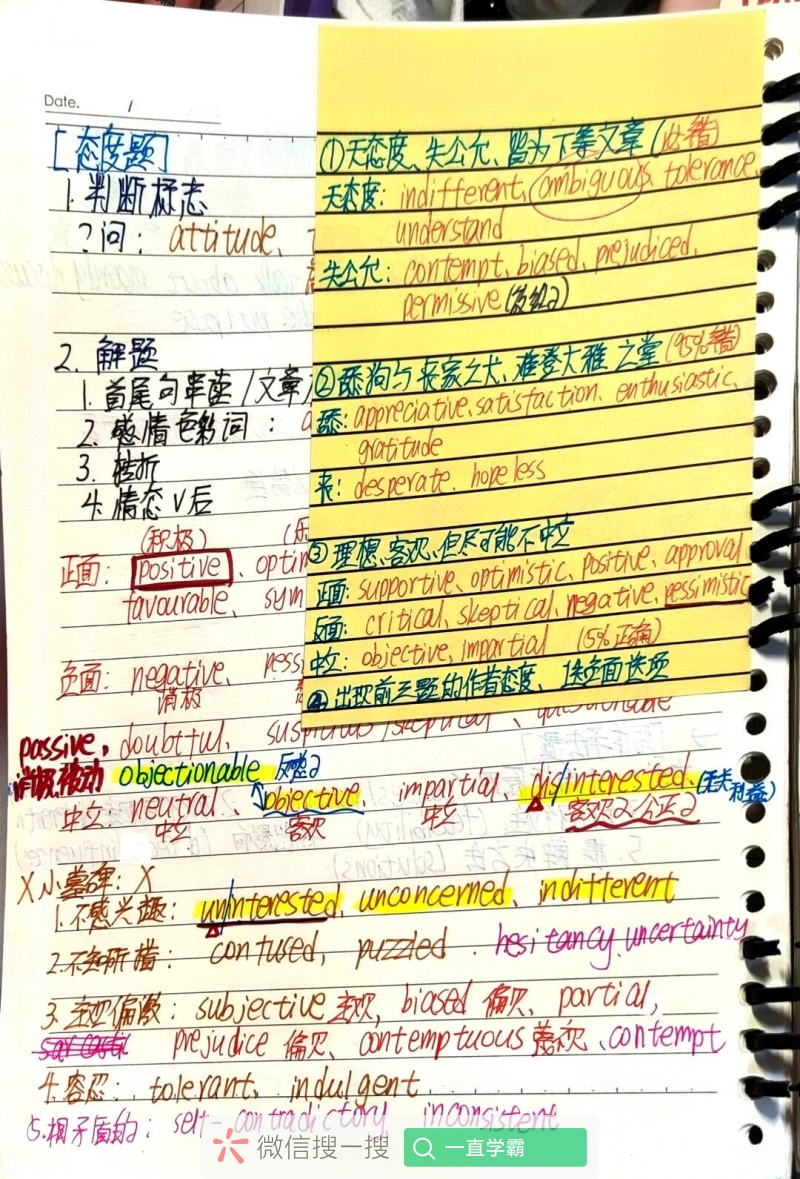 Date.
[态度题]
1. 判断标志
?问: attitude、
2. 解题
1. 首尾句串座/文章
2. 感情色彩词:
3. 转折
4. 情态V后
(积极)
正面: positive、optim
favourable、sym
负面: negative、pess
消极
passive, doubtful、suspicious/skeptical、questionable
消极被动 objectionable 反感2
中立: neutral、objective、impartial、dis/interested、(无关利益)
中立 客观 中立 客观2公正2
X小墓碑: X
1. 不感兴趣: un/interested、unconcerned、indifferent
2. 不知所措: confused, puzzled. hesitancy、uncertainty
3. 主观偏激: subjective 主观, biased 偏见、partial,
prejudice 偏见、contemptuous 蔑视、contempt
4. 容忍: tolerant、indulgent
5. 相矛盾的: self-contradictory inconsistent
①无态度、失公允、皆为下等文章(必错)
无态度: indifferent、ambiguous、tolerance、
understand
失公允: contempt、biased、prejudiced、
permissive
②舔狗与丧家之犬、难登大雅之堂(95%错)
舔: appreciative、satisfaction、enthusiastic、
gratitude
丧: desperate、hopeless
③理想、客观、但尽可能不中立
正面: supportive、optimistic、positive、approval
反面: critical、skeptical、negative、pessimistic
中立: objective、impartial (5%正确)
④出现前三题的作者态度、选负面选项
微信搜一搜
一直学霸